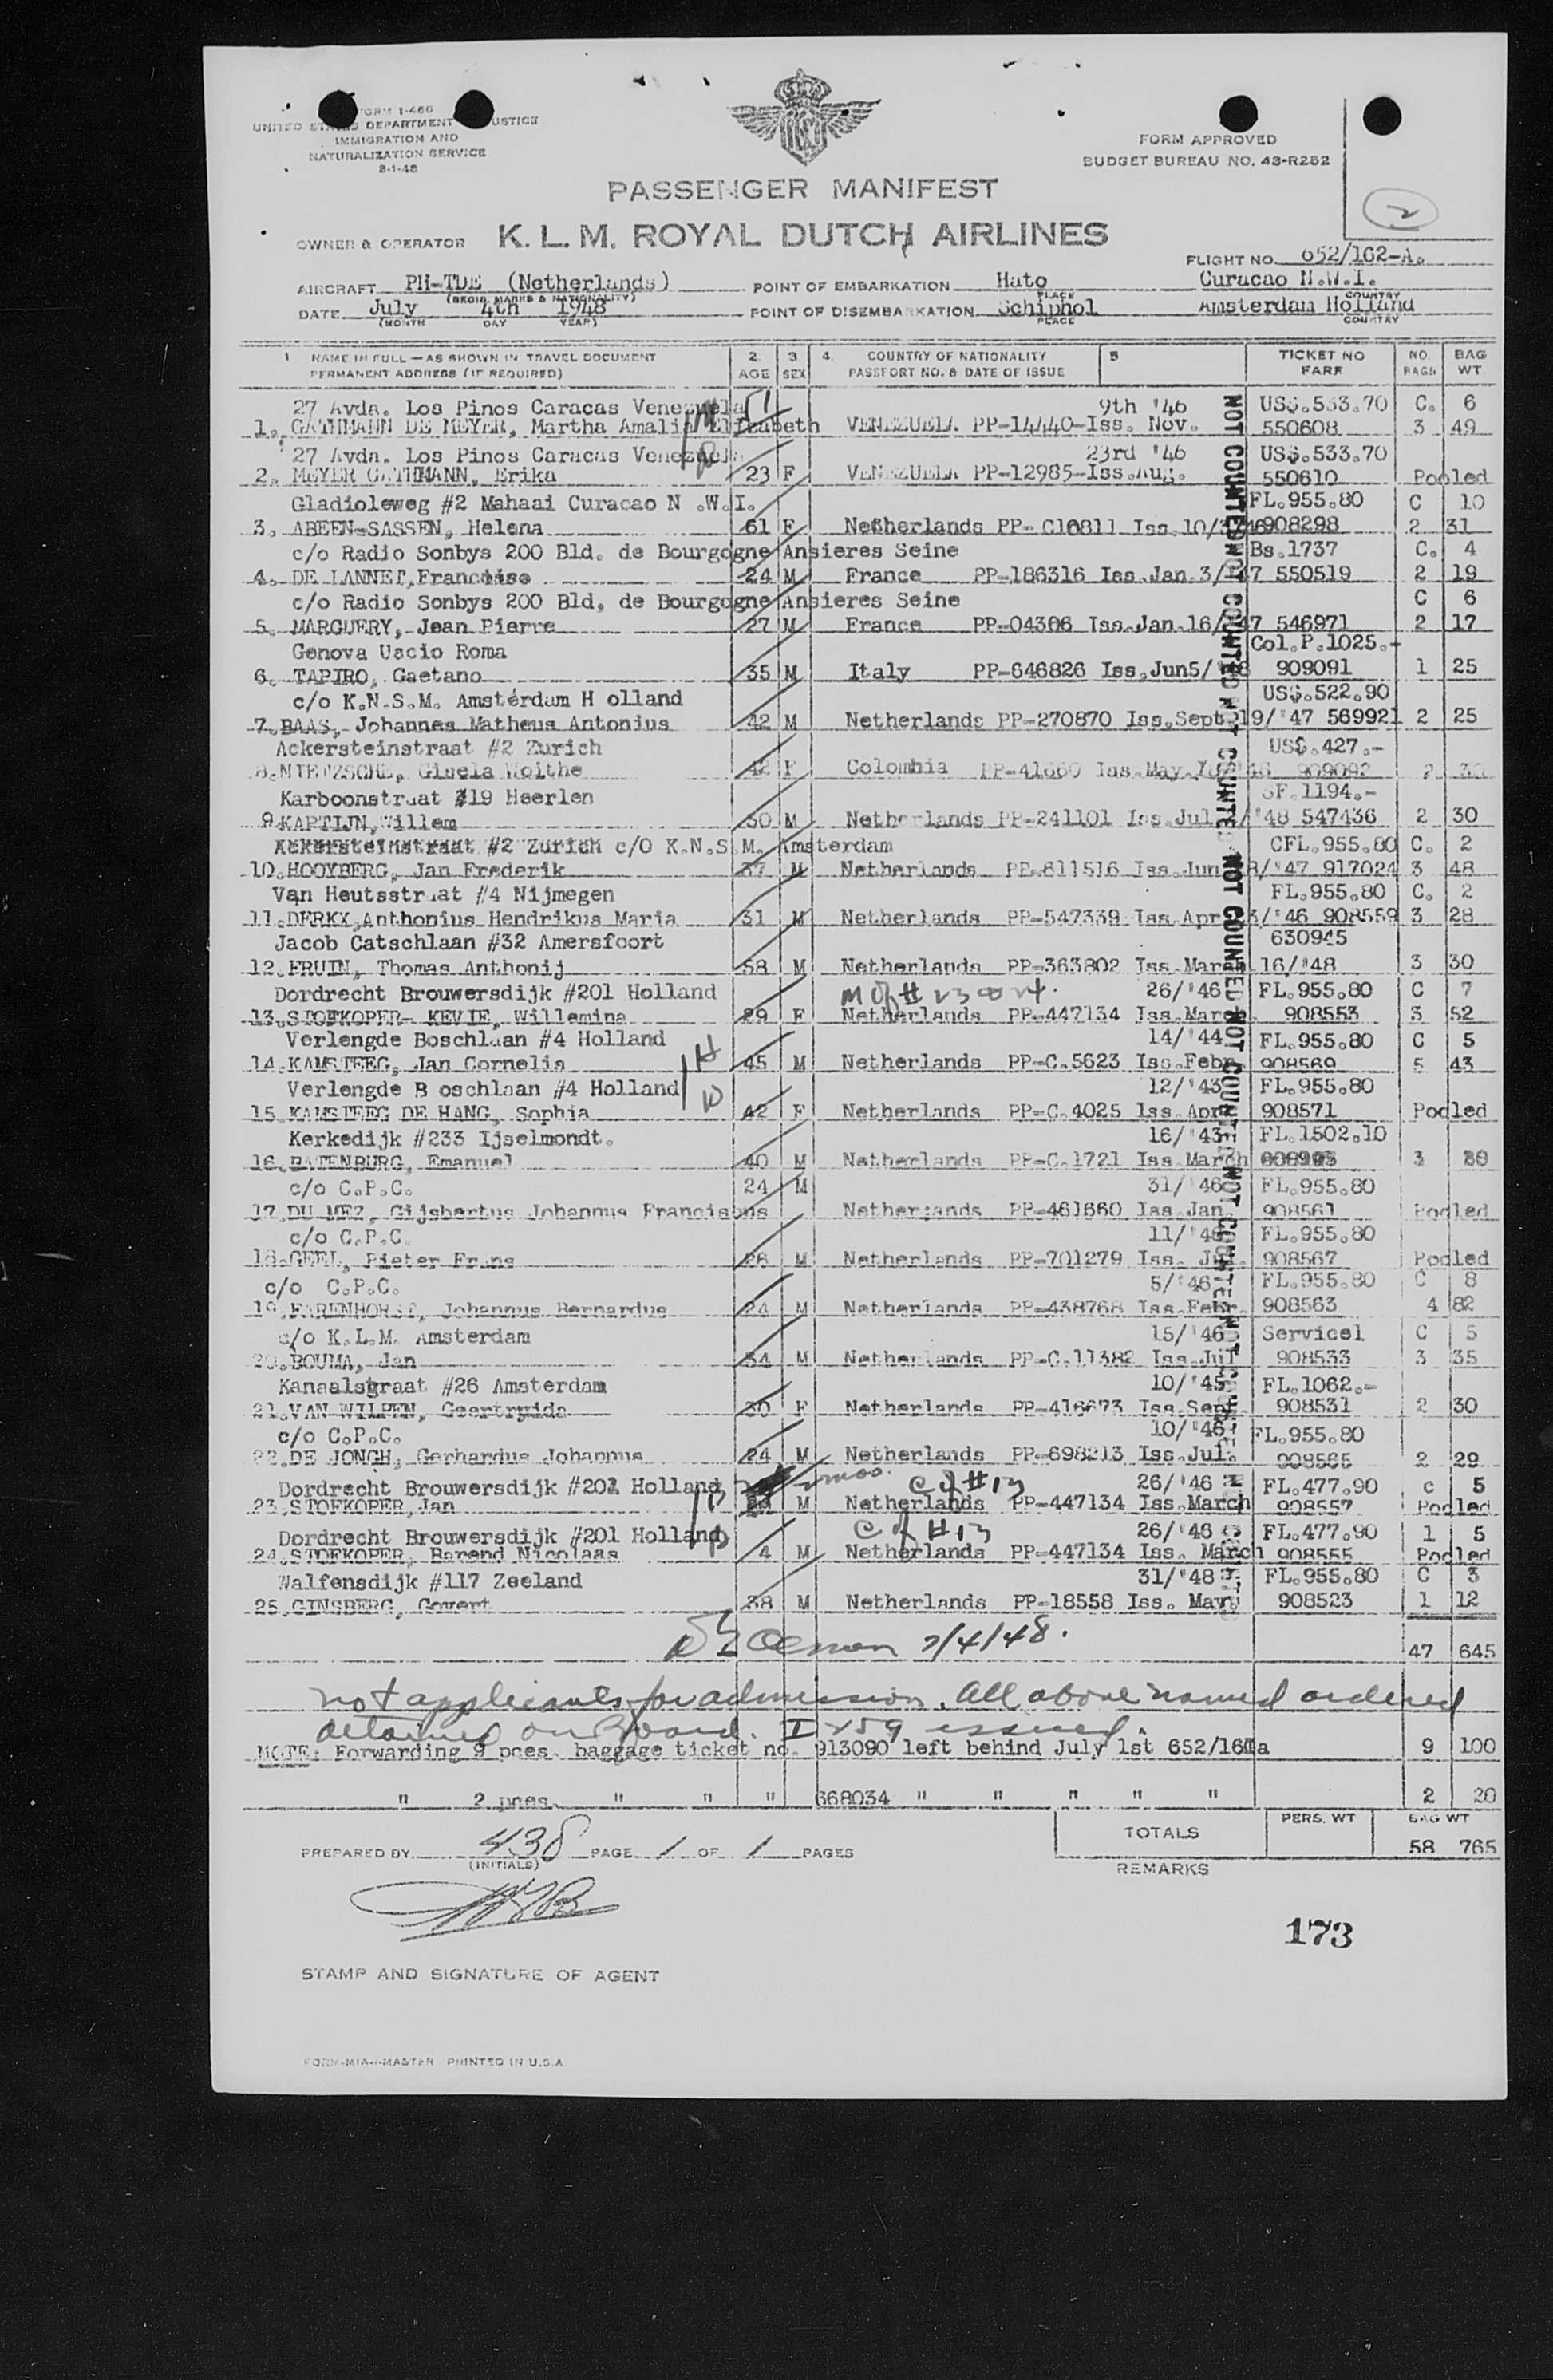 FORM I-466
UNITED STATES DEPARTMENT JUSTICE
IMMIGRATION AND
NATURALIZATION SERVICE
FORM APPROVED
BUDGET BUREAU NO. 43-R252
2
PASSENGER MANIFEST
OWNER & OPERATOR K. L. M. ROYAL DUTCH AIRLINES
FLIGHT NO. 652/162-A.
AIRCRAFT PH-TDE (Netherlands) POINT OF EMBARKATION Hato Curacao N.W.I.
DATE July 4th 1948 POINT OF DISEMBARKATION Schiphol Amsterdam Holland
(MONTH DAY YEAR) PLACE COUNTRY
1 NAME IN FULL — AS SHOWN IN TRAVEL DOCUMENT 2. 3 4. COUNTRY OF NATIONALITY 5 TICKET NO NO. BAG
PERMANENT ADDRESS (IF REQUIRED) AGE SEX PASSPORT NO. & DATE OF ISSUE FARE BAGS WT.
27 Avda. Los Pinos Caracas Venezuela 51 9th '46 US$.533.70 C. 6
1. GATHMANN DE MEYER, Martha Amalia Elizabeth VENEZUELA PP-14440-Iss. Nov. 550608 3 49
27 Avda. Los Pinos Caracas Venezuela 23rd '46 US$.533.70
2. MEYER GATHMANN, Erika 23 F VENEZUELA PP-12985-Iss.Aug. 550610 Pooled
Gladioleweg #2 Mahaai Curacao N .W.I. FL.955.80 C 10
3. ABEEN-SASSEN, Helena 61 F Netherlands PP- C10811 Iss.10/3/46 908298 2 31
c/o Radio Sonbys 200 Bld. de Bourgogne Ansieres Seine Bs.1737 C. 4
4. DE LANNET, Francoise 24 M France PP-186316 Iss.Jan.3/'47 550519 2 19
c/o Radio Sonbys 200 Bld, de Bourgogne Ansieres Seine C 6
5. MARGUERY, Jean Pierre 27 M France PP-04306 Iss.Jan.16/'47 546971 2 17
Genova Uscio Roma Col.P.1025.-
6. TAPIRO, Gaetano 35 M Italy PP-646826 Iss.Jun5/'48 909091 1 25
c/o K.N.S.M. Amsterdam H olland US$.522.90
7. BAAS, Johannes Matheus Antonius 42 M Netherlands PP-270870 Iss.Sept.19/'47 569921 2 25
Ackersteinstraat #2 Zurich US$.427.-
8. NIETZSCHE, Gisela Woithe 42 F Colombia PP-41660 Iss.May. 909092 2 30
Karboonstraat #19 Heerlen SF.1194.-
9. KAPTIJN, Willem 50 M Netherlands PP-241101 Iss.Jul. '48 547436 2 30
Ackersteinstraat #2 Zurich c/O K.N.S.M. Amsterdam CFL.955.80 C. 2
10. HOOYBERG, Jan Frederik 37 M Netherlands PP-611516 Iss.Jun. 8/'47 917024 3 48
Van Heutsstraat #4 Nijmegen FL.955.80 C. 2
11. DERKX, Anthonius Hendrikus Maria 31 M Netherlands PP-547339 Iss.Apr. 3/'46 908559 3 28
Jacob Catschlaan #32 Amersfoort 630945
12. FRUIN, Thomas Anthonij 58 M Netherlands PP-363802 Iss.March 16/'48 3 30
Dordrecht Brouwersdijk #201 Holland M of # 23 & 24. 26/'46 FL.955.80 C 7
13. STOFKOPER- KEVIE, Willemina 29 F Netherlands PP-447134 Iss.March 908553 3 52
Verlengde Boschlaan #4 Holland H 14/'44 FL.955.80 C 5
14. KAMSTEEG, Jan Cornelis 45 M Netherlands PP-C.5623 Iss.Febr. 908569 5 43
Verlengde B oschlaan #4 Holland W 12/'43 FL.955.80
15. KAMSTEEG DE HANG, Sophia 42 F Netherlands PP-C.4025 Iss.Apr. 908571 Pooled
Kerkedijk #233 Ijselmondt. 16/'43 FL.1502.10
16. BATENBURG, Emanuel 40 M Netherlands PP-C.1721 Iss.March 3
c/o C.P.C. 24 M 31/'46 FL.955.80
17. DU MEZ, Gijsbertus Johannus Franciscus Netherlands PP-461660 Iss.Jan. 908561 Pooled
c/o C.P.C. 11/'46 FL.955.80
18. GEEL, Pieter Frans 26 M Netherlands PP-701279 Iss. 908567 Pooled
c/o C.P.C. 5/'46 FL.955.80 C 8
19. FARENHORST, Johannus Bernardus 24 M Netherlands PP-438768 Iss.Febr. 908563 4 82
c/o K.L.M. Amsterdam 15/'46 Servicel C 5
20. BOUMA, Jan 34 M Netherlands PP-C.11382 Iss.Jul 908533 3 35
Kanaalstraat #26 Amsterdam 10/'45 FL.1062.-
21. VAN WILPEN, Geertruida 30 F Netherlands PP-416673 Iss.Sept. 908531 2 30
c/o C.P.C. 10/'46 FL.955.80
22. DE JONGH, Gerhardus Johannus 24 M Netherlands PP-698213 Iss.Jul. 908565 2 29
Dordrecht Brouwersdijk #201 Holland mos. C of #13 26/'46 FL.477.90 c 5
23. STOFKOPER, Jan M Netherlands PP-447134 Iss.March 908557 Pooled
Dordrecht Brouwersdijk #201 Holland C of #13 26/'46 FL.477.90 1 5
24. STOFKOPER, Barend Nicolaas 4 M Netherlands PP-447134 Iss. March 908555 Pooled
Walfensdijk #117 Zeeland 31/'48 FL.955.80 C 3
25. GINSBERG, Govert 38 M Netherlands PP-18558 Iss. May. 908523 1 12
NOT COUNTED NOT COUNTED NOT COUNTED NOT COUNTED NOT COUNTED NOT COUNTED
7/4/48.
47 645
not applicants for admission. All above named ordered
detained on Board. I 259 issued.
NOTE: Forwarding 9 pces. baggage ticket no. 913090 left behind July 1st 652/160a 9 100
" 2 pces. " " " 668034 " " " " " 2 20
TOTALS PERS. WT BAG WT
58 765
PREPARED BY 438 PAGE 1 OF 1 PAGES
(INITIALS)
REMARKS
173
STAMP AND SIGNATURE OF AGENT
FORM-MIA-1-MASTER PRINTED IN U.S.A